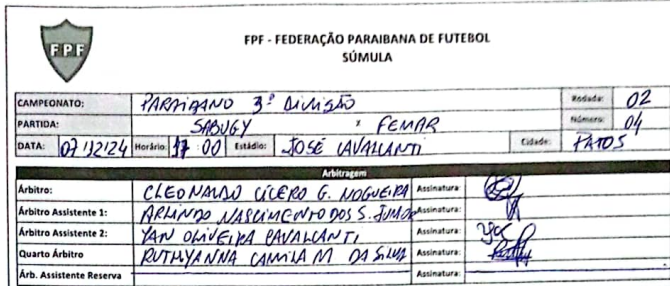 FPF
FPF - FEDERAÇÃO PARAIBANA DE FUTEBOL
SÚMULA
CAMPEONATO: PARAIBANO 3ª DIVISÃO Rodada: 02
PARTIDA: SABUGY x FEMAR Número: 04
DATA: 07/12/24 Horário: 17:00 Estádio: JOSÉ CAVALCANTI Cidade: PATOS
Arbitragem
Árbitro: CLEONALDO CÍCERO G. NOGUEIRA Assinatura:
Árbitro Assistente 1: ARLINDO NASCIMENTO DOS S. JUNIOR Assinatura:
Árbitro Assistente 2: YAN OLIVEIRA CAVALCANTI Assinatura:
Quarto Árbitro RUTHYANNA CAMILA M DA SILVA Assinatura:
Árb. Assistente Reserva Assinatura: